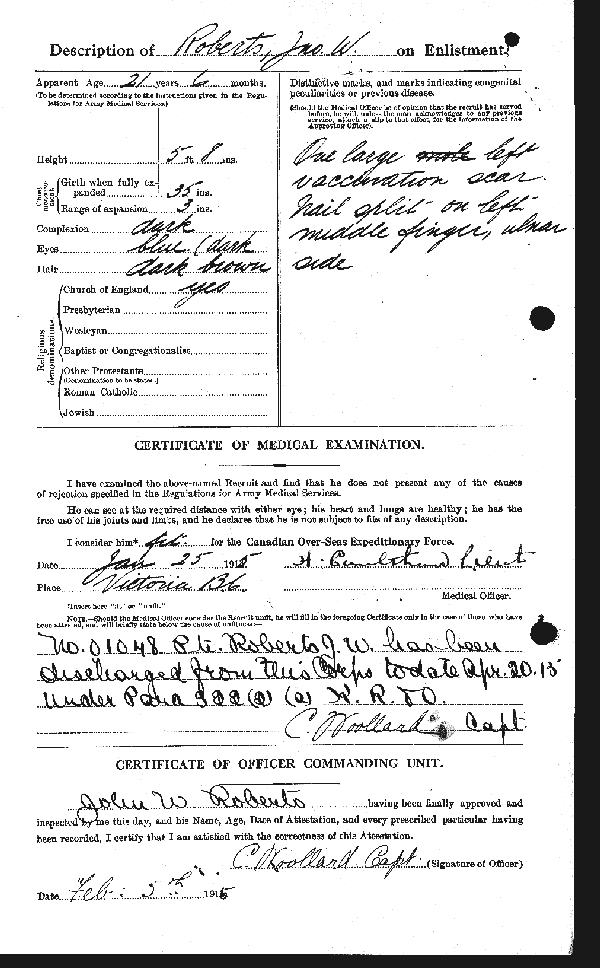 Description of Roberts, Jno W. on Enlistment.
Apparent Age 21 years 6 months.
(To be determined according to the instructions given in the Regulations for Army Medical Services.)
Height 5 ft 8 ins.
Chest measurement
Girth when fully expanded 35 ins.
Range of expansion 3 ins.
Complexion dark
Eyes blue (dark
Hair dark brown
Religious denominations
Church of England yes
Presbyterian
Wesleyan
Baptist or Congregationalist
Other Protestants
(Denomination to be stated.)
Roman Catholic
Jewish
Distinctive marks, and marks indicating congenital
peculiarities or previous disease.
(Should the Medical Officer be of opinion that the recruit has served
before, he will, unless the man acknowledges to any previous
service, attach a slip to that effect, for the information of the
Approving Officer).
One large mole left
vaccination scar
Nail split on left
middle finger, ulnar
side
CERTIFICATE OF MEDICAL EXAMINATION.
I have examined the above-named Recruit and find that he does not present any of the causes
of rejection specified in the Regulations for Army Medical Services.
He can see at the required distance with either eye; his heart and lungs are healthy; he has the
free use of his joints and limbs, and he declares that he is not subject to fits of any description.
I consider him* fit for the Canadian Over-Seas Expeditionary Force.
Date Jan 25 1915
Place Victoria BC
Medical Officer.
*Insert here "fit" or "unfit."
NOTE.—Should the Medical Officer consider the Recruit unfit, he will fill in the foregoing Certificate only in the case of those who have
been attested, and will briefly state below the cause of unfitness:—
No. 01048 Pte. Roberts J. W. has been
discharged from this Corps to date Apr. 20. 15
Under Para 322 (a) (a) K. R. & O.
C Woollard Capt
CERTIFICATE OF OFFICER COMMANDING UNIT.
John W Roberts having been finally approved and
inspected by me this day, and his Name, Age, Date of Attestation, and every prescribed particular having
been recorded, I certify that I am satisfied with the correctness of this Attestation.
C Woollard Capt (Signature of Officer)
Date Feb. 3rd 1915